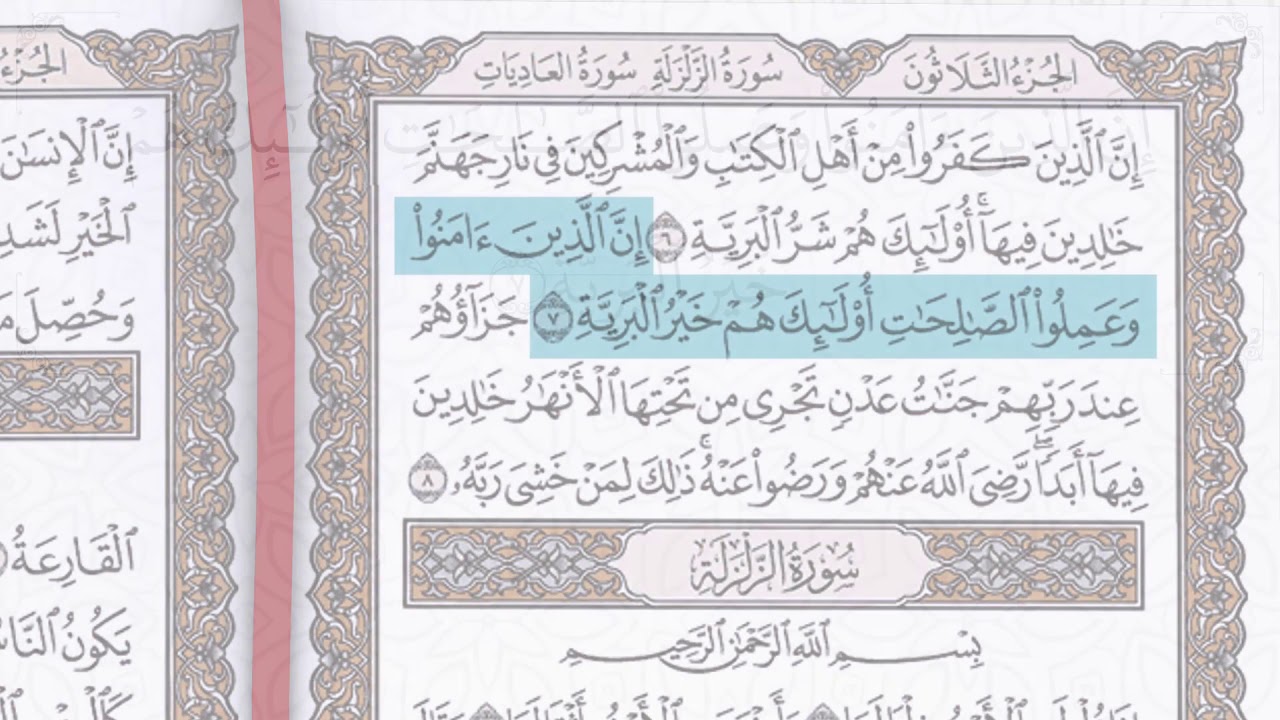 الجُزْءُ الثَّلَاثُونَ سُورَةُ الزَّلْزَلَةِ سُورَةُ العَادِيَاتِ
إِنَّ ٱلَّذِينَ كَفَرُوا۟ مِنْ أَهْلِ ٱلْكِتَٰبِ وَٱلْمُشْرِكِينَ فِى نَارِ جَهَنَّمَ
خَٰلِدِينَ فِيهَآ ۚ أُو۟لَٰٓئِكَ هُمْ شَرُّ ٱلْبَرِيَّةِ ٦ إِنَّ ٱلَّذِينَ ءَامَنُوا۟
وَعَمِلُوا۟ ٱلصَّٰلِحَٰتِ أُو۟لَٰٓئِكَ هُمْ خَيْرُ ٱلْبَرِيَّةِ ٧ جَزَآؤُهُمْ
عِندَ رَبِّهِمْ جَنَّٰتُ عَدْنٍ تَجْرِى مِن تَحْتِهَا ٱلْأَنْهَٰرُ خَٰلِدِينَ
فِيهَآ أَبَدًا ۖ رَّضِىَ ٱللَّهُ عَنْهُمْ وَرَضُوا۟ عَنْهُ ۚ ذَٰلِكَ لِمَنْ خَشِىَ رَبَّهُۥ ٨
سُورَةُ الزَّلْزَلَةِ
بِسْمِ ٱللَّهِ ٱلرَّحْمَٰنِ ٱلرَّحِيمِ
الجُزْءُ
إِنَّ ٱلْإِنسَٰنَ
ٱلْخَيْرِ
وَحُصِّلَ
ٱلْقَارِعَةُ
يَكُونُ